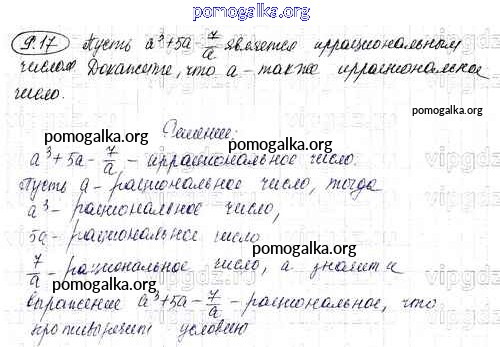 pomogalka.org
9.17 Пусть a³+5a-7/a является иррациональным
числом. Докажите, что a - также иррациональное
число.
pomogalka.org
Решение:
pomogalka.org
pomogalka.org
a³+5a-7/a - иррациональное число.
Пусть a - рациональное число, тогда
a³ - рациональное число,
5a - рациональное число
pomogalka.org
7/a - рациональное число, а значит и
выражение a³+5a-7/a - рациональное, что
pomogalka.org
pomogalka.org
противоречит условию